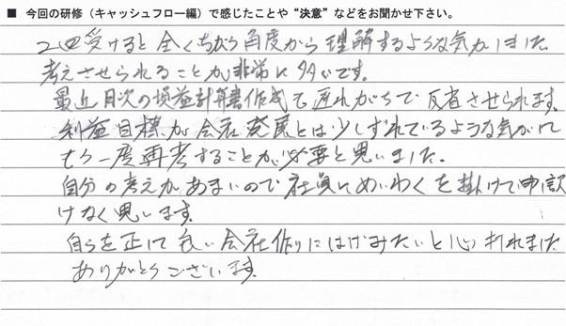 ■ 今回の研修（キャッシュフロー編）で感じたことや“決意”などをお聞かせ下さい。
2回受けると全くちがう角度から理解するような気がしました
考えさせられることが非常に多いです。
最近月次の損益計算書作成も遅れがちで反省させられます。
利益目標が会社発展とは少しずれているような気がして
もう一度再考することが必要と思いました。
自分の考えがあまいので社員にめいわくを掛けて申訳
けなく思います。
自らを正して良い会社作りにはげみたいと心
ありがとうございます。